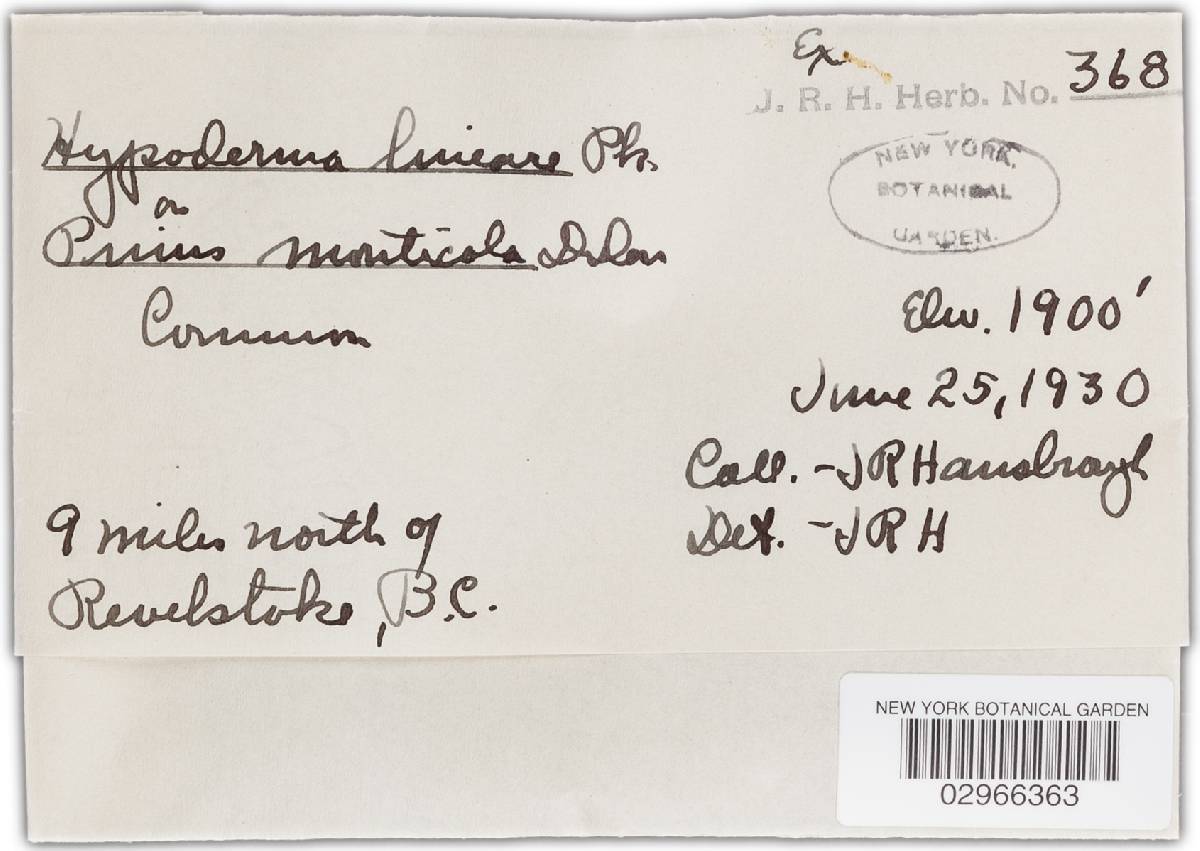 Ex
J. R. H. Herb. No. 368
Hypoderma lineare Pk.
on
Pinus monticola D. Don
Common
NEW YORK
BOTANICAL
GARDEN.
Elev. 1900'
June 25, 1930
Coll. - J R Hansbrough
Det. - J R H
9 miles north of
Revelstoke, B.C.
NEW YORK BOTANICAL GARDEN
02966363